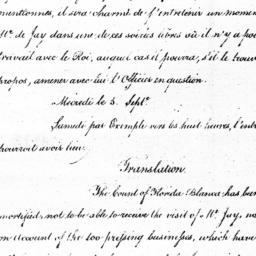 mentionnes, il sera charmé de l'entretenir un momen
Mr. de Jay dans une de ces soirées libres où il n'y a po
travail avec le Roi, auquel cas il pourra, s'il le trouv
propos, amener avec lui l'Officier en question.
Mecredi le 3. Septr.
Samedi par Exemple vers les huit heures, l'entr
pourroit avoir lieu.
Translation.
The Count of Florida-Blanca has been
mortified, not to be able to receive the visit of Mr. Jay, no
on account of the too pressing business, which have